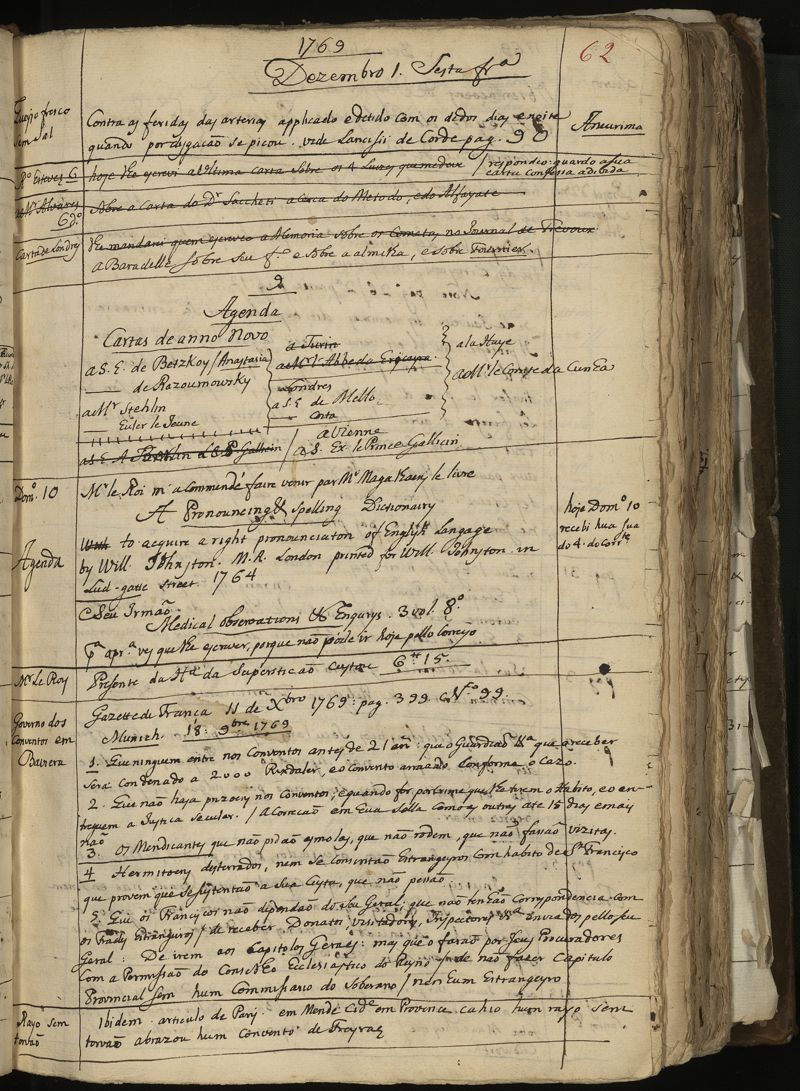 1769
62
Dezembro 1. Sesta fra
Queijo fresco
sem sal
Contra as feridas das arterias applicado e detido com os dedos dias e noite
quando por sygação se picou. vede Lancisii de Corde pag. 90
Aneurima
Ro Esteves G
hoje lhe escrevi a ultima carta sobre os 4 Luizes que me deve / respondeo: quando a sua
carta confessa a divida
Mr. Alvares
6 do.
Sobre a carta do Dr Saccheti acerca do Metodo, e do Alfayate
Carta de Londres
lhe mandarei quem escreveo a Memoria sobre os Cometas no Journal de Trevoux
a Baradelle sobre seu fo e sobre a almika, e sobre Fournier.
9
Agenda
Cartas de anno Novo
a S. E. de Betzkoy / Anastasia
de Razoumowsky
a Mr Stehlin
Euler le Jeune
a Turin
a Mr l'Abbe da
Londres
a S. E. de Mello
Costa
a la Haye
a Mr le Comte da Cunha
a Vienne
a S. E. A
Gallitzin / a S. Ex. le Prince Gallicin
Domo. 10
Mr le Roi m'a commendé faire venir par Mr Magalhaens le livre
A Pronouncing & Spelling Dictionairy
Agenda
to acquire a right pronounciaton of English Langage
by Will Johnston. M. A. London printed for Will. Johnston in
Lud-gatte street 1764
hoje Domo 10
recebi hua sua
do 4. do Corrte
C Seu Irmão.
Medical observations & Enquirys. 3 vol. 8o
pa a pra vez que lhe escrever, porque não póde ir hoje pello correyo
Mr. Le Roy
Presente da Ha da Superstição custou 6tt 15.
Governo dos
Conventos em
Bavera
Gazette de França 11 de Xbro 1769: pag. 399. No 99.
Munich. 18. 9bre 1769
1. Que ninguem entre nos Conventos antes de 21 an: que o Guardião &a que a receber
sera condenado a 2000 Rixdaler, e o convento arruado conforme o cazo.
2. Que não haja prizoens nos Conventos; e quando for por crime que lhe tirem o Habito, e o en-
treguem a Justiça secular. / A Correcão em Sua Sella como as outras até 15 dias e mais
não
3. Os Mendicantes que não pidão esmolas, que não rodem, que não fassão vizitas.
4 Hermitoens desterrados, nem se consentão Estrangeyros com habito de S. Francisco
que provem que se sustentão a sua custa, que não peção
5. Que os Franciscos não dependão do seu Geral; que não tenhão Corrspondencia com
os Frades Estrangeiros / de receber Donatos, visitadores, Inspectores &a Enviados pello seu
Garal: De irem aos Capitolos Geraes: mas que o farão por seus Procuradores
Com a Permissão do Conselho Ecclesiastico do Reyno / de não fazer Capitulo
Provincial sem hum Commissario do Soberano / nem hum Estrangeyro
Rayo sem
torvão
Ibidem. articulo de Paris. em Mende Cide em Provence cahio hum rayo sem
torvão abrazou hum Convento de Freyras